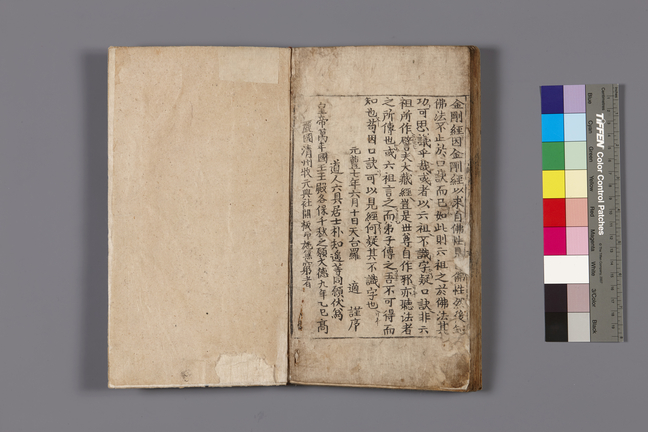 金剛經因金剛經以求自佛性見 佛性然後知
佛法不止於口訣而已如此則六祖之於佛法其
功可思議乎哉或者以六祖不識字疑口訣非六
祖所作譬夫大藏經豈是世尊自作邪亦聽法者
之所傳也或六祖言之而弟子傳之吾不可得而
知也苟因口訣可以見經何疑其不識字也
元豐七年六月十日天台羅 適 謹序
道人六具居士朴知遠等同願伏為
皇帝萬年國王主殿各保千秋之願大德九年乙巳高
麗國清州牧元興社開板印施無窮者
TIFFEN Color Control Patches
Blue
Cyan
Green
Yellow
Red
Magenta
White
3/Color
Black